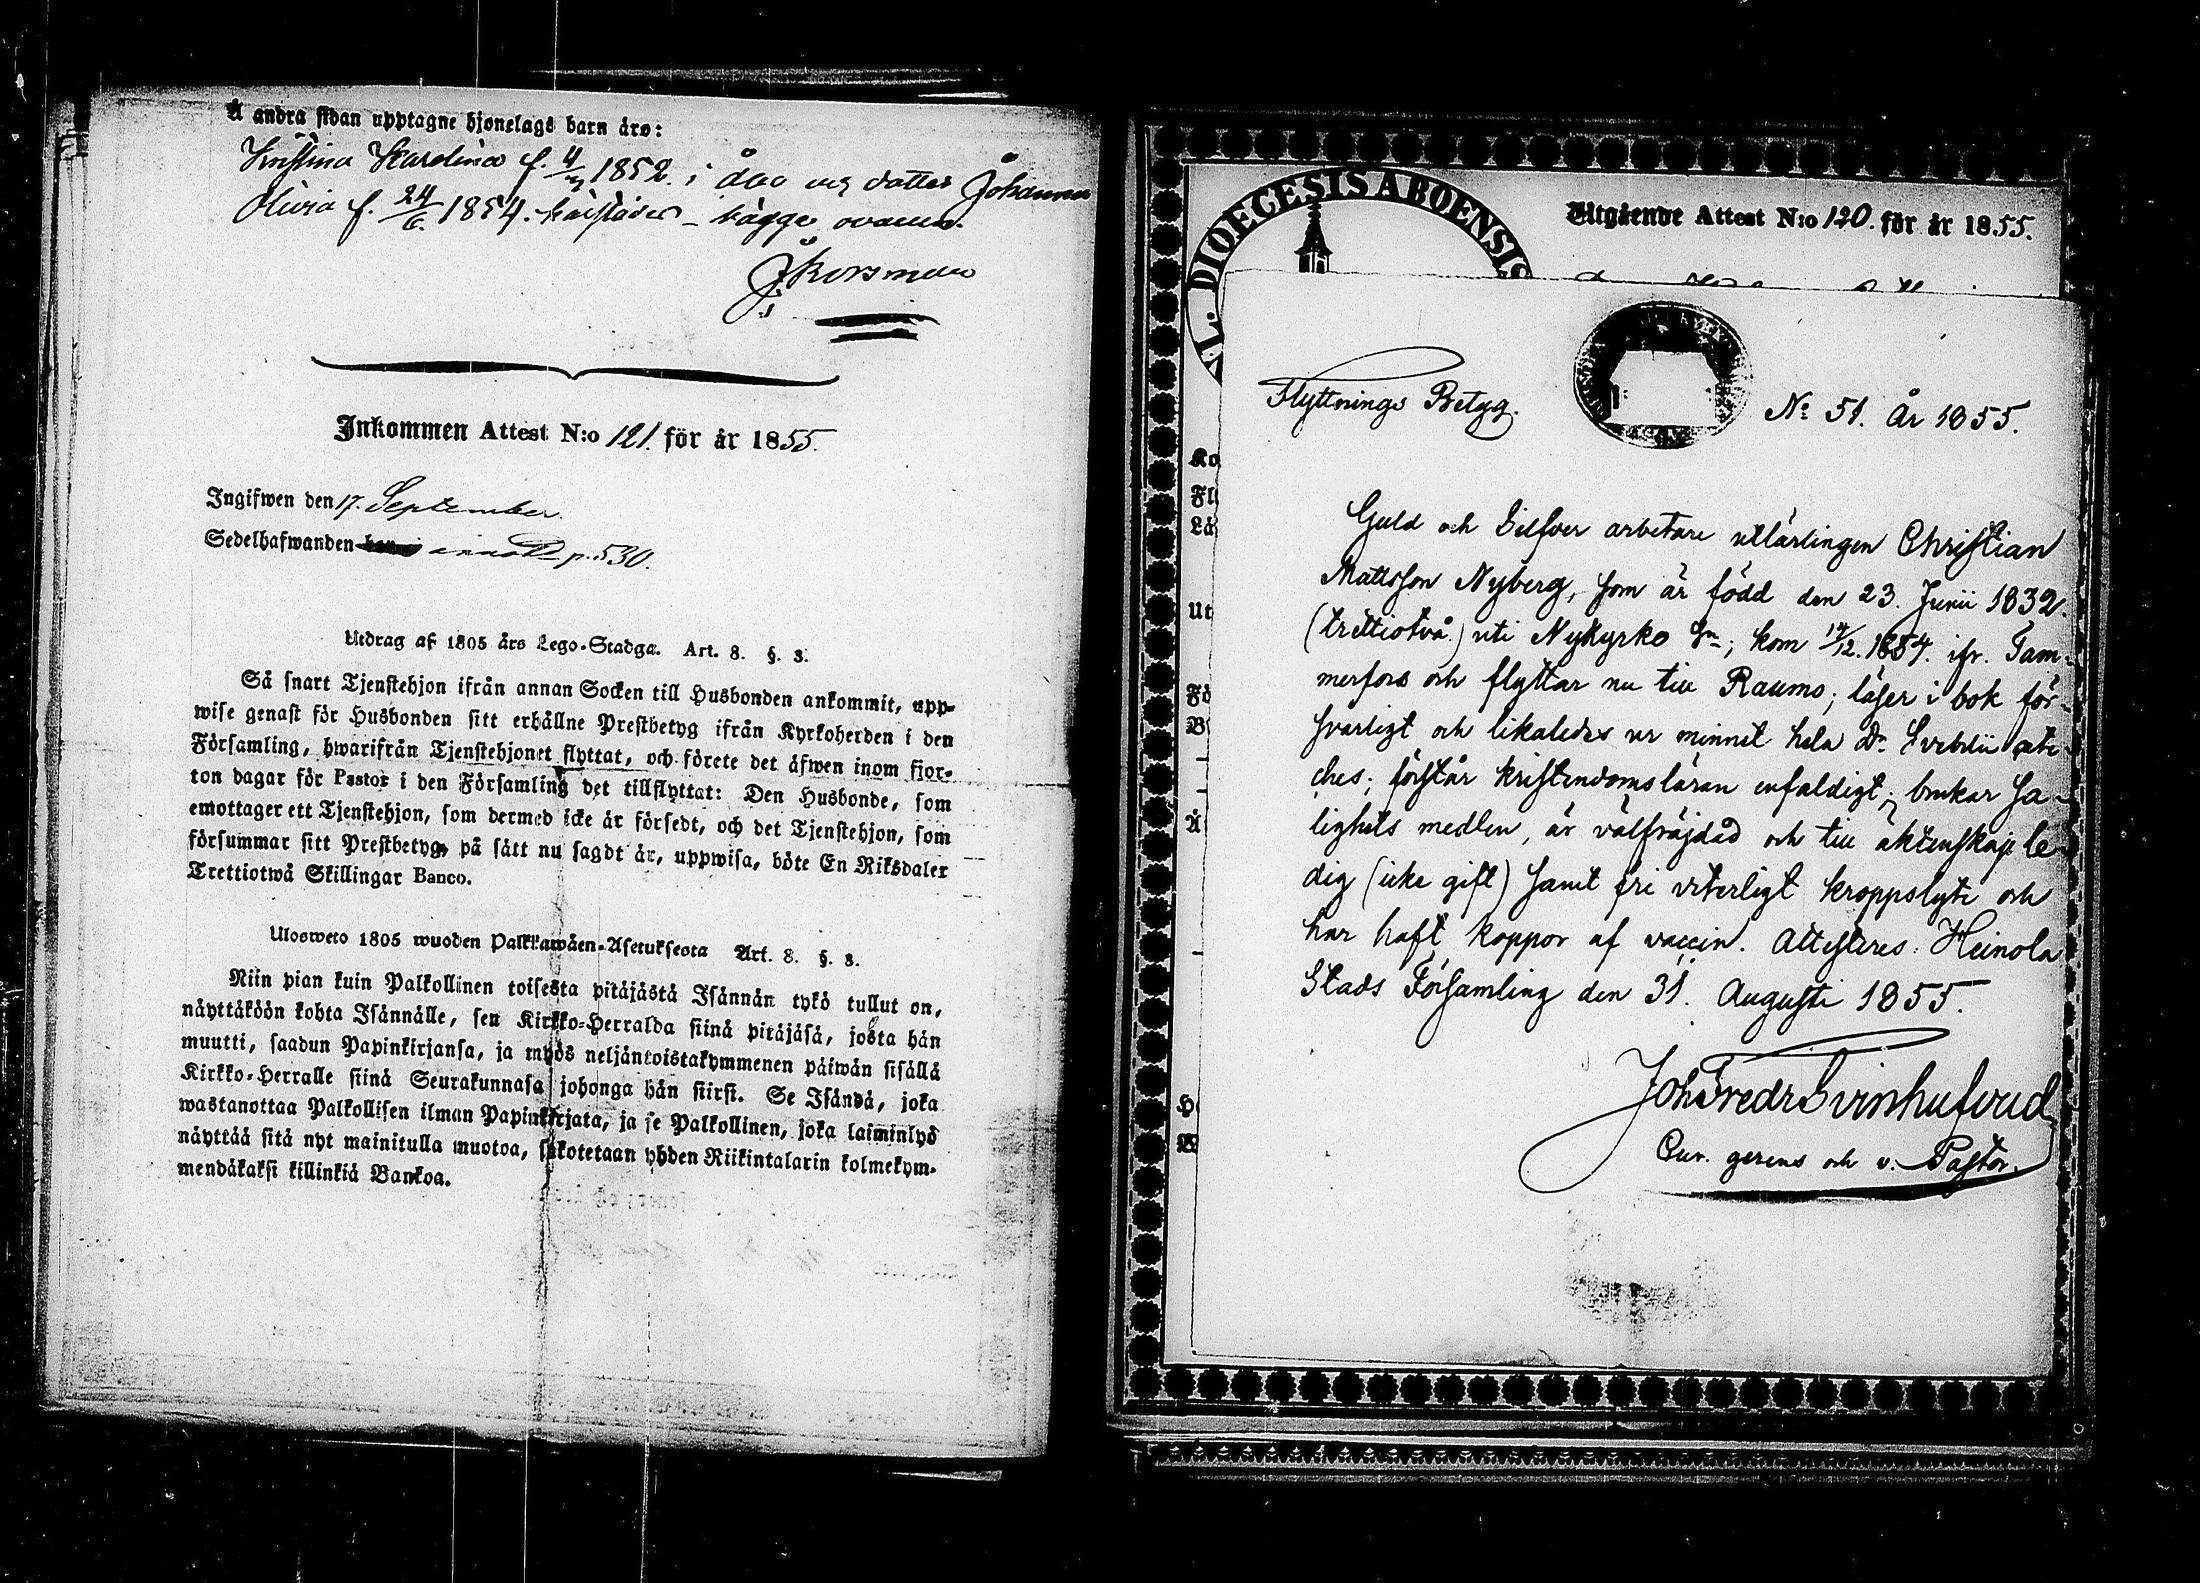 Å andra sidan upptagne hjonelags barn äro:
Kristina Karolina f. 4/3 1852. i dottes Johanna
Olivia f. 24/6. 1854.
J. Korsman
Inkommen Attest N:o 121. för år 1855.
Ingifwen den 17. September
Sedelhafwanden p. 530.
Utdrag af 1805 års Lego-Stadga. Art. 8. §. 3.
Så snart Tjenstehjon ifrån annan Socken till Husbonden ankommit, upp-
wise genast för Husbonden sitt erhållne Prestbetyg ifrån Kyrkoherden i den
Församling, hwarifrån Tjenstehjonet flyttat, och förete det äfwen inom fjor-
ton dagar för Pastor i den Församling det tillflyttat: Den Husbonde, som
emottager ett Tjenstehjon, som dermed icke är försedt, och det Tjenstehjon, som
försummar sitt Prestbetyg, på sätt nu sagdt är, uppwisa, böte En Riksdaler
Trettiotwå Skillingar Banco.
Ulosweto 1805 wuoden Palkkawäen-Asetuksesta Art. 8. §. 3.
Niin pian kuin Palkollinen toisesta pitäjästä Isännän tykö tullut on,
näyttäköön kohta Isännälle, sen Kirkko-Herralda siinä pitäjäsä, josta hän
muutti, saadun Papinkirjansa, ja myös neljäntoistakymmenen päiwän sisällä
Kirkko-Herralle siinä Seurakunnasa johonga hän siirsi. Se Isändä, joka
wastanottaa Palkollisen ilman Papinkirjata, ja se Palkollinen, joka laiminlyö
näyttää sitä nyt mainitulla muotoa, sakotetaan yhden Riikintalarin kolmekym-
mendäkaksi killinkiä Bankoa.
L. DIOECESIS ABOENSIS
Utgående Attest N:o 120. för år 1855.
Ko
Fl
Lä
Ut
Fö
B
Ä
H
Flyttnings Betyg. No 51. År 1855.
Guld och Silfver arbetare utlärlingen Christian
Mattsson Nyberg, som är född den 23. Junii 1832.
(trettiotvå.) uti Nykyrko Sn; kom 14/12. 1854. ifr. Tam-
merfors och flyttar nu till Raumo; läser i bok för-
svarligt och likaledes ur minnet hela Dr Svebilii cate-
ches; förstår kristendomsläran enfaldigt; brukar Sa-
lighets medlen, är välfräjdad och till äktenskap le-
dig (icke gift) samt fri veterligt kroppslyte och
har haft koppor af vaccin. Attesteres: Heinola
Stads Församling den 31. Augusti 1855.
Joh Fredr Svinhufvud
Cur. gerens och v. Pastor.